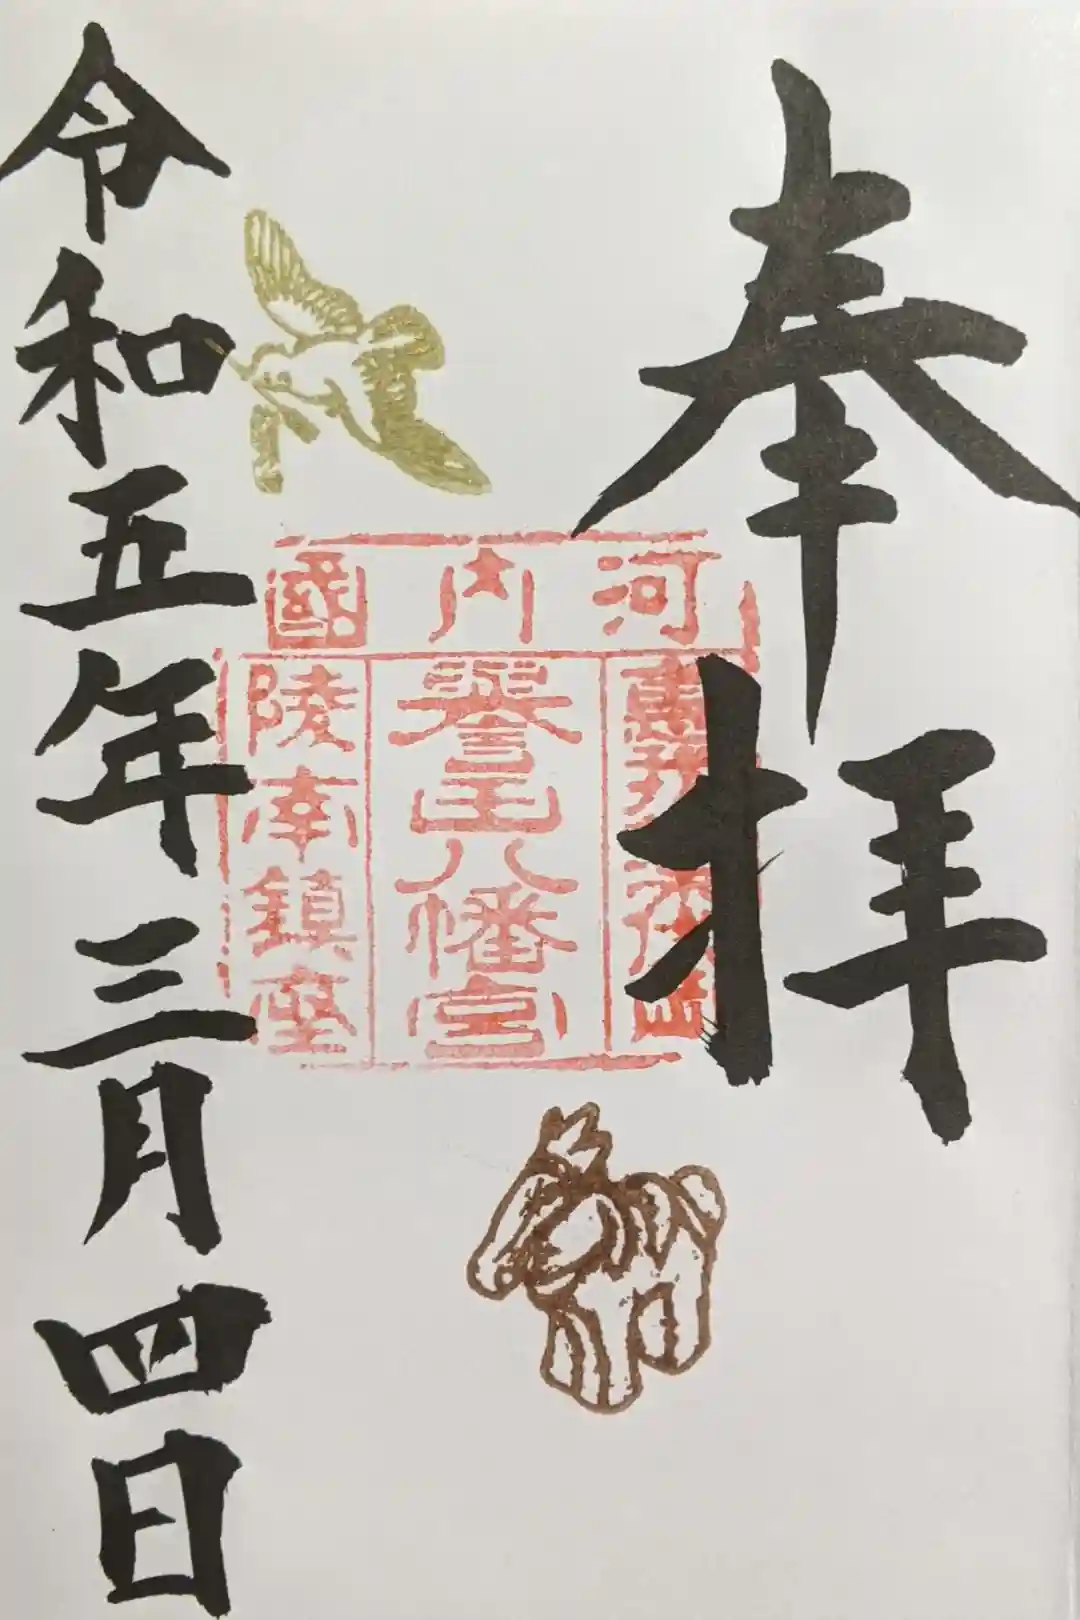 奉拝
河内國
譽田八幡宮
陵南鎮座
令和五年三月四日